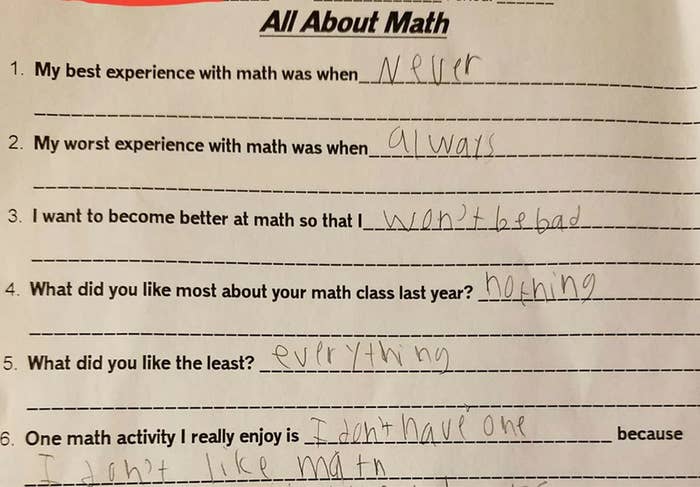 All About Math
1. My best experience with math was when Never
2. My worst experience with math was when always
3. I want to become better at math so that I won't be bad
4. What did you like most about your math class last year? nothing
5. What did you like the least? everything
6. One math activity I really enjoy is I don't have one because
I don't like math